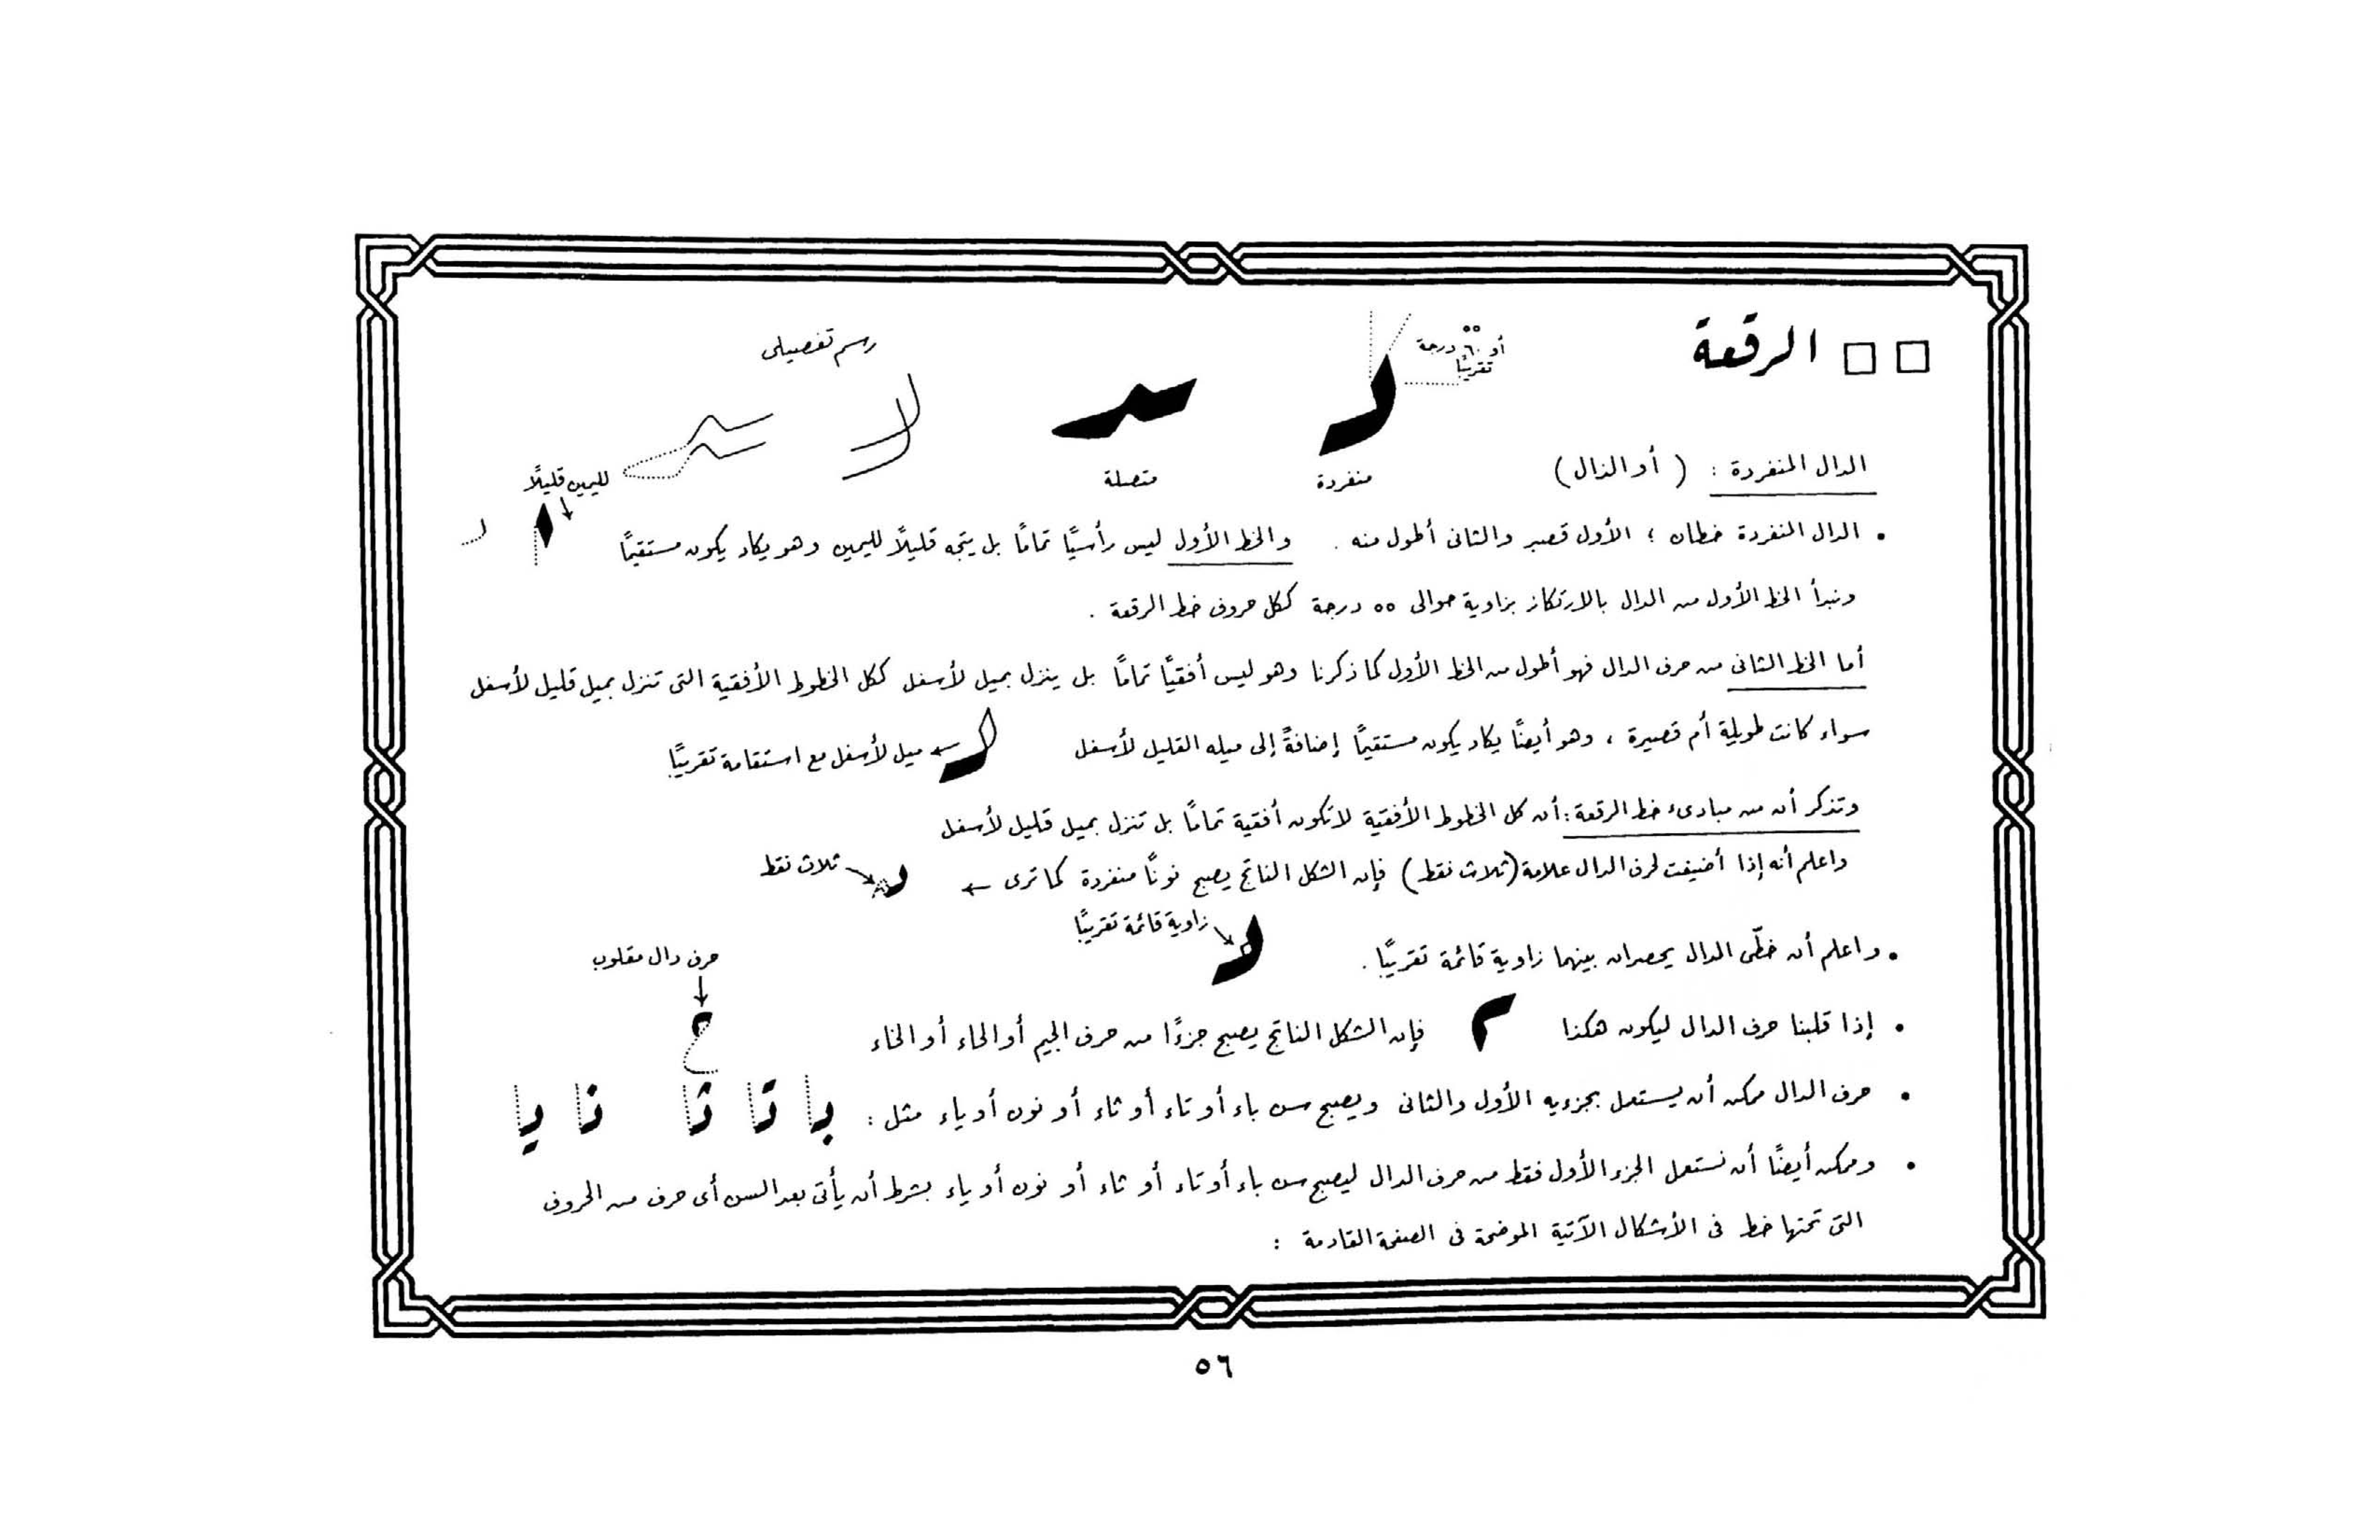 الرقعة
٥٥
أو ٦٠ درجة
تقريبًا
رسم تفصيلى
منفردة
متصلة
الدال المنفردة : ( أو الذال )
لليمين قليلًا
• الدال المنفردة خطان ؛ الأول قصير والثانى أطول منه . والخط الأول ليس رأسيًا تمامًا بل يتجه قليلًا لليمين وهو يكاد يكون مستقيمًا
ونبدأ الخط الأول من الدال بالارتكاز بزاوية حوالى ٥٥ درجة ككل حروف خط الرقعة .
أما الخط الثانى من حرف الدال فهو أطول من الخط الأول كما ذكرنا وهو ليس أفقيًا تمامًا بل ينزل بميل لأسفل ككل الخطوط الأفقية التى تنزل بميل قليل لأسفل
سواء كانت طويلة أم قصيرة ، وهو أيضًا يكاد يكون مستقيمًا إضافةً إلى ميله القليل لأسفل
ميل لأسفل مع استقامة تقريبًا
وتذكر أن من مبادىء خط الرقعة : أن كل الخطوط الأفقية لا تكون أفقية تمامًا بل تنزل بميل قليل لأسفل
واعلم أنه إذا أضيفت لحرف الدال علامة ( ثلاث نقط ) فإن الشكل الناتج يصبح نونًا منفردة كما ترى ←
ثلاث نقط
زاوية قائمة تقريبًا
• واعلم أن خطّى الدال يحصران بينهما زاوية قائمة تقريبًا .
حرف دال مقلوب
• إذا قلبنا حرف الدال ليكون هكذا فإن الشكل الناتج يصبح جزءًا من حرف الجيم أو الحاء أو الخاء
• حرف الدال ممكن أن يستعمل بجزءيه الأول والثانى ويصبح سن باء أو تاء أو ثاء أو نون أو ياء مثل : با تا ثا نا يا
• وممكن أيضًا أن نستعمل الجزء الأول فقط من حرف الدال ليصبح سن باء أو تاء أو ثاء أو نون أو ياء بشرط أن يأتى بعد السن أى حرف من الحروف
التى تحتها خط فى الأشكال الآتية الموضحة فى الصفحة القادمة :
٥٦